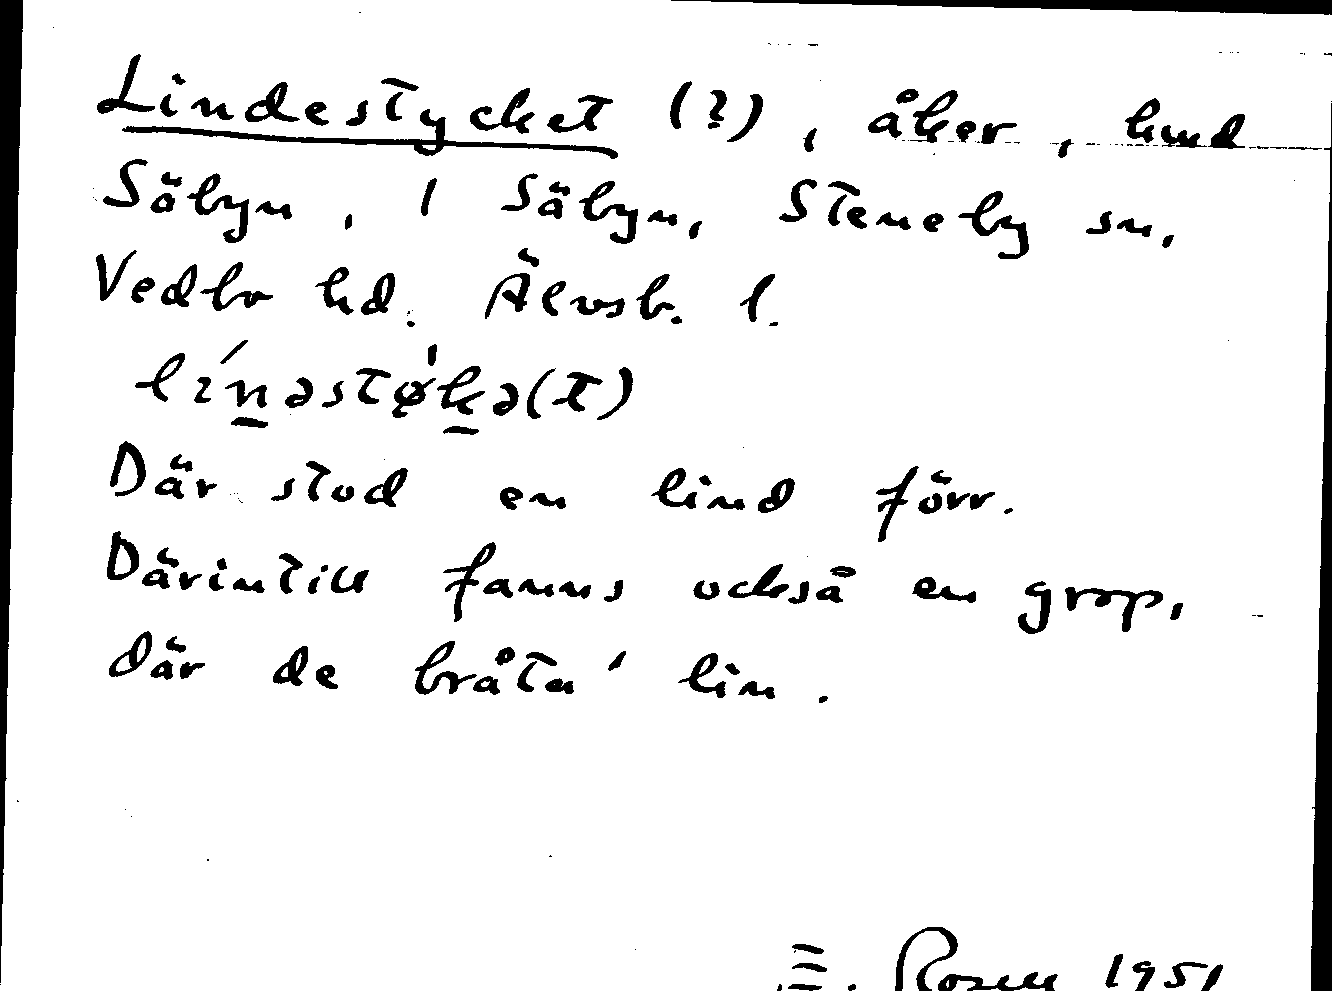 Lindestycket (?), åker, hmd
Säbyn, 1 Säbyn, Steneby sn,
Vedbo hd. Älvsb. l.
li´n̲əstø̨'k̲ə(t)
Där stod en lind förr.
Därintill fanns också en grop,
där de bråta' lin.
E. Rosell 1951